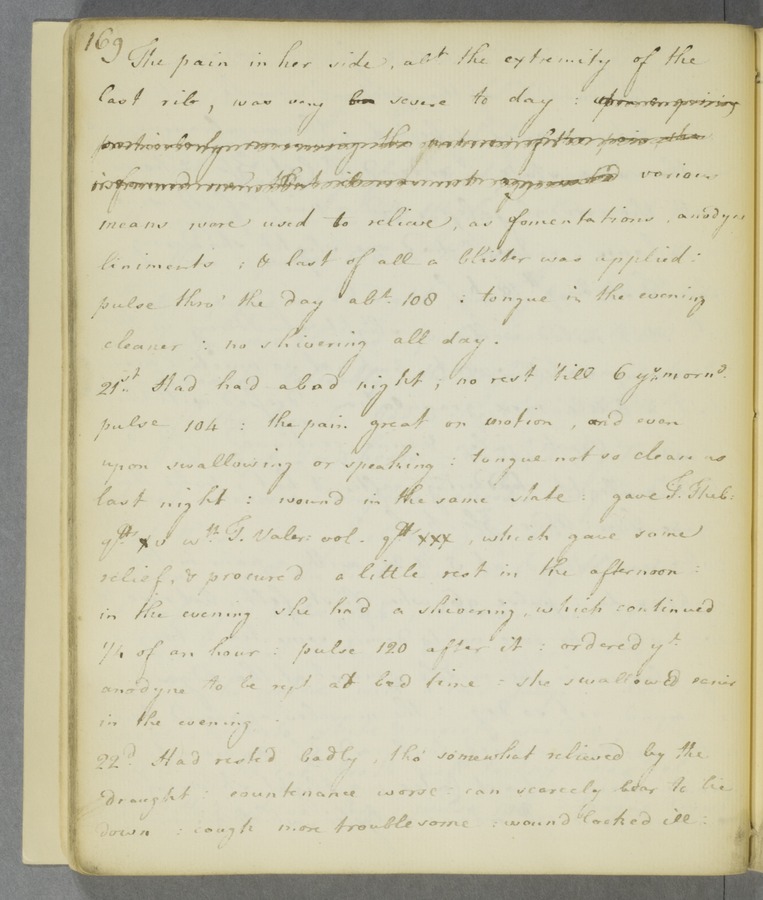 169
The pain in her side, abt the extremity of the
last rib, was very severe to day : upon enquiring
various
means were used to relieve, as fomentations, anodyn
liniments ; & last of all a blister was applied :
pulse thro' the day abt. 108 : tongue in the evening
cleaner : no shivering all day.
21st. Had had a bad night ; no rest 'till 6 ys. morng.
pulse 104 : the pain great on motion, and even
upon swallowing or speaking : tongue not so clean as
last night : wound in the same state : gave T. Theb:
gtt xv wth. T. Valer: vol. gtt xxx, which gave some
relief, & procured a little rest in the afternoon :
in the evening she had a shivering, which continued
of an hour : pulse 120 after it : ordered yt.
anodyne to be rept at bed time : she swallowed easier
in the evening.
22d. Had rested badly, tho' somewhat relieved by the
draught : countenance worse : can scarcely bear to lie
down : cough more troublesome : wound looked ill :